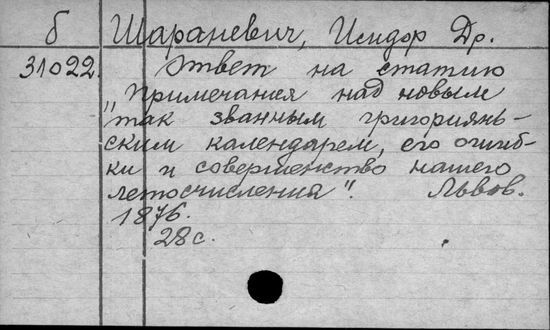 б Шараневич, Исидор Др.
31022. Ответ на статию
„Примечания над новым
так званным григориянь-
ским календарем, его ошиб-
ки и совершенство нашего
летосчисления". Львов.
1876.
28 с.